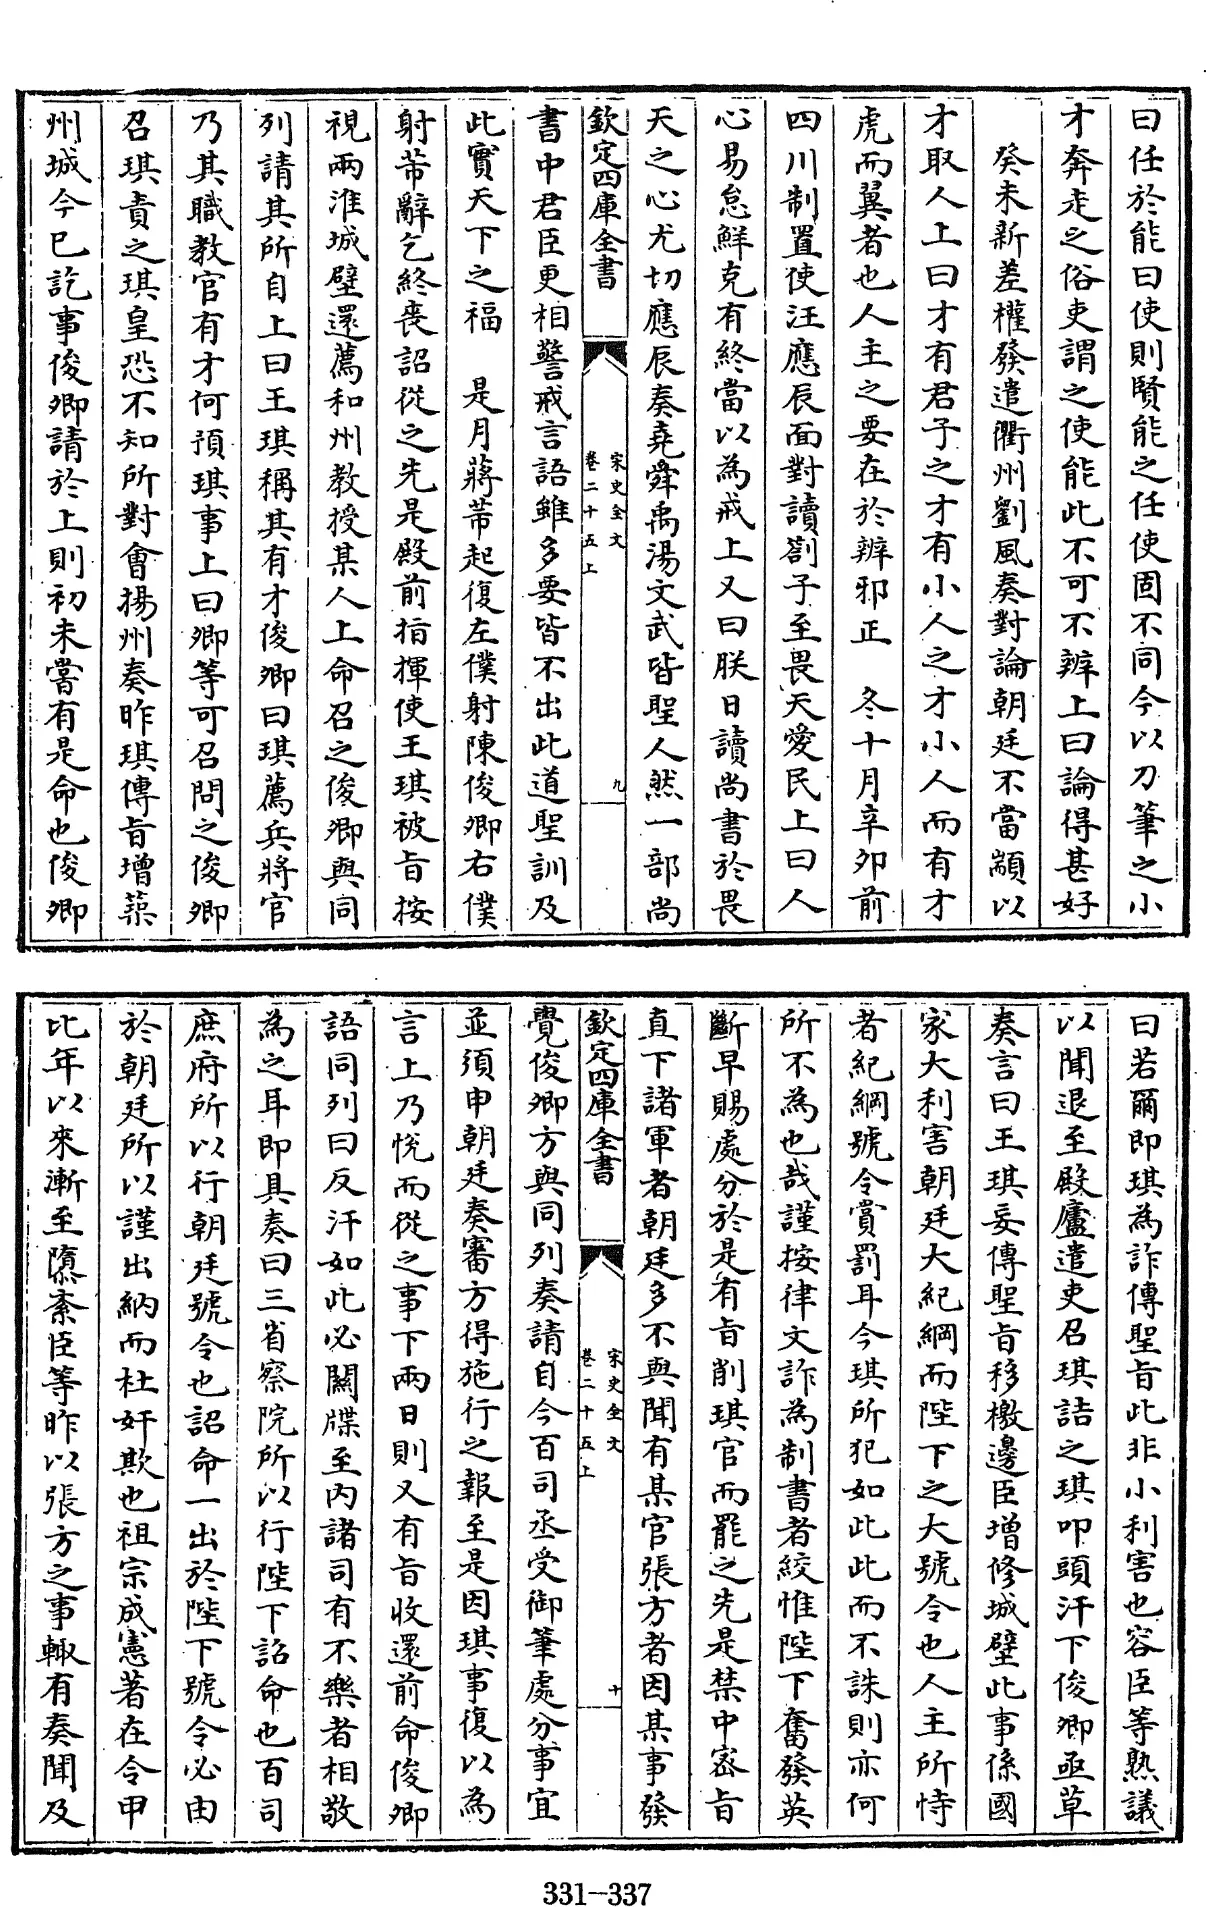 曰任於能曰使則賢能之任使固不同今以刀筆之小
才奔走之俗吏謂之使能此不可不辨上曰論得甚好
癸未新差權發遣衢州劉風奏對論朝廷不當顓以
才取人上曰才有君子之才有小人之才小人而有才
虎而翼者也人主之要在於辨邪正 冬十月辛卯前
四川制置使汪應辰面對讀劄子至畏天愛民上曰人
心易怠鮮克有終當以為戒上又曰朕日讀尚書於畏
天之心尤切應辰奏堯舜禹湯文武皆聖人然一部尚
欽定四庫全書
宋史全文
卷二十五上
九
書中君臣更相警戒言語雖多要皆不出此道聖訓及
此實天下之福 是月蔣芾起復左僕射陳俊卿右僕
射芾辭乞終喪詔從之先是殿前指揮使王琪被旨按
視兩淮城壁還薦和州教授某人上命召之俊卿與同
列請其所自上曰王琪稱其有才俊卿曰琪薦兵將官
乃其職教官有才何預琪事上曰卿等可召問之俊卿
召琪責之琪皇恐不知所對會揚州奏昨琪傳旨增築
州城今已訖事俊卿請於上則初未嘗有是命也俊卿
曰若爾即琪為詐傳聖旨此非小利害也容臣等熟議
以聞退至殿廬遣吏召琪詰之琪叩頭汗下俊卿亟草
奏言曰王琪妄傳聖旨移檄邊臣增修城壁此事係國
家大利害朝廷大紀綱而陛下之大號令也人主所恃
者紀綱號令賞罰耳今琪所犯如此此而不誅則亦何
所不為也哉謹按律文詐為制書者絞惟陛下奮發英
斷早賜處分於是有旨削琪官而罷之先是禁中密旨
直下諸軍者朝廷多不與聞有某官張方者因某事發
欽定四庫全書
宋史全文
卷二十五上
十
覺俊卿方與同列奏請自今百司丞受御筆處分事宜
並須申朝廷奏審方得施行之報至是因琪事復以為
言上乃悅而從之事下兩日則又有旨收還前命俊卿
語同列曰反汗如此必關牒至內諸司有不樂者相敬
為之耳即具奏曰三省察院所以行陛下詔命也百司
庶府所以行朝廷號令也詔命一出於陛下號令必由
於朝廷所以謹出納而杜奸欺也祖宗成憲著在令甲
比年以來漸至隳紊臣等昨以張方之事輙有奏聞及
331-337